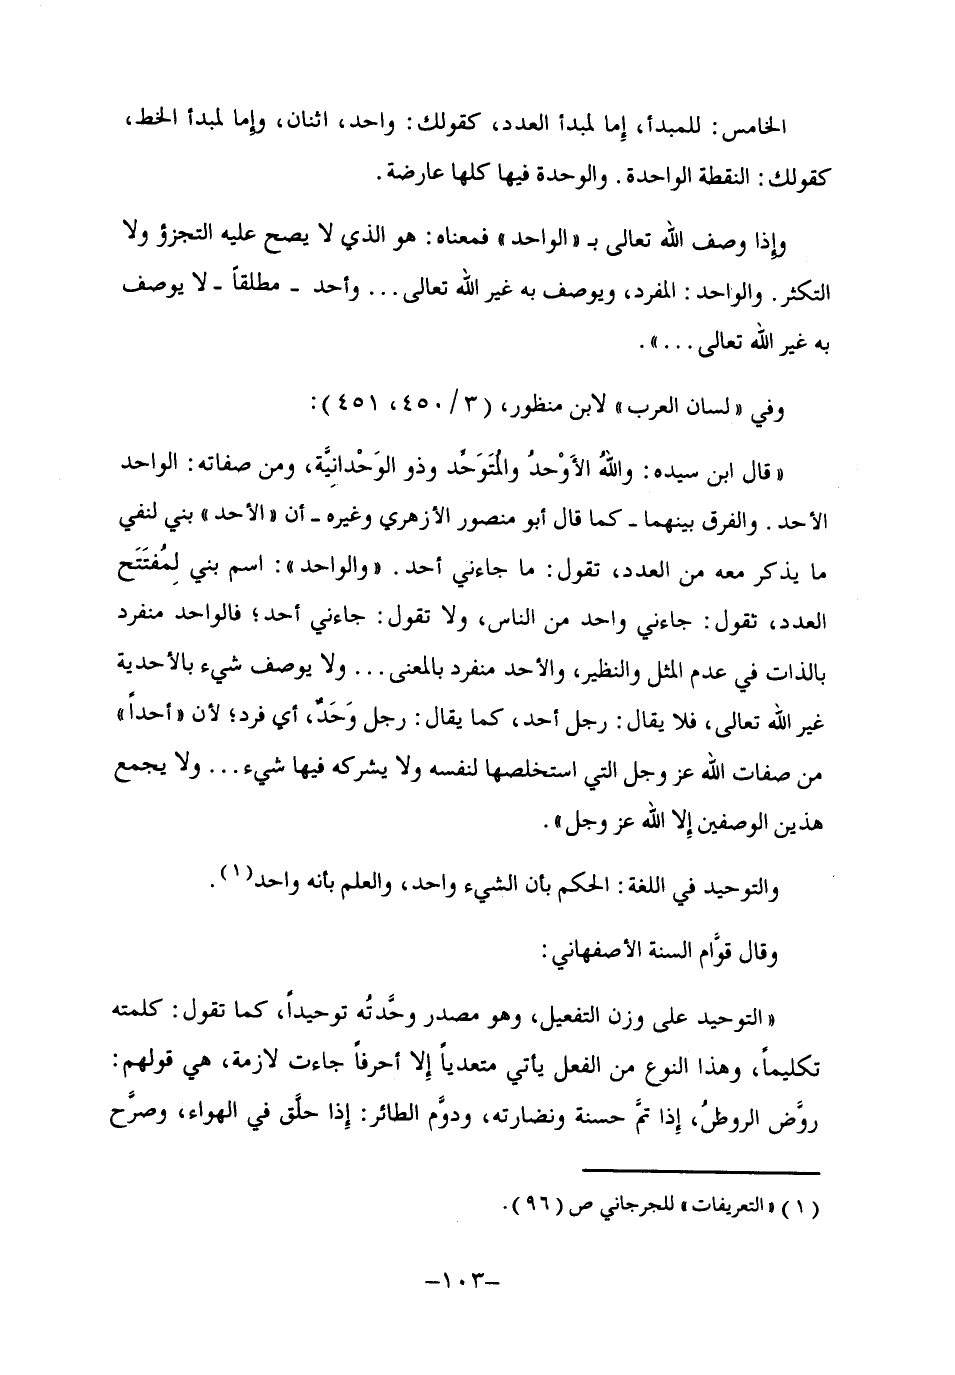 الخامس: للمبدأ، إما لمبدأ العدد، كقولك: واحد، اثنان، وإما لمبدأ الخط،
كقولك: النقطة الواحدة. والوحدة فيها كلها عارضة.
وإذا وصف الله تعالى بـ «الواحد» فمعناه: هو الذي لا يصح عليه التجزؤ ولا
التكثر. والواحد: المفرد، ويوصف به غير الله تعالى... وأحد ـ مطلقاً ـ لا يوصف
به غير الله تعالى...».
وفي «لسان العرب» لابن منظور، (٣/ ٤٥٠، ٤٥١):
«قال ابن سيده: واللهُ الأَوْحدُ والمُتَوَحِّد وذو الوَحْدانِيَّة، ومن صفاته: الواحد
الأحد. والفرق بينهما ـ كما قال أبو منصور الأزهري وغيره ـ أن «الأحد» بني لنفي
ما يذكر معه من العدد، تقول: ما جاءني أحد. «والواحد»: اسم بني لِمُفتَتَح
العدد، تقول: جاءني واحد من الناس، ولا تقول: جاءني أحد؛ فالواحد منفرد
بالذات في عدم المثل والنظير، والأحد منفرد بالمعنى... ولا يوصف شيء بالأحدية
غير الله تعالى، فلا يقال: رجل أحد، كما يقال: رجل وَحَدٌ، أي فرد؛ لأن «أحداً»
من صفات الله عز وجل التي استخلصها لنفسه ولا يشركه فيها شيء... ولا يجمع
هذين الوصفين إلا الله عز وجل».
والتوحيد في اللغة: الحكم بأن الشيء واحد، والعلم بأنه واحد(١).
وقال قوَّام السنة الأصفهاني:
«التوحيد على وزن التفعيل، وهو مصدر وحَّدتُه توحيداً، كما تقول: كلمته
تكليماً، وهذا النوع من الفعل يأتي متعدياً إلا أحرفاً جاءت لازمة، هي قولهم:
روَّض الروطُ، إذا تمَّ حسنة ونضارته، ودوَّم الطائر: إذا حلَّق في الهواء، وصرَّح
(١) «التعريفات» للجرجاني ص (٩٦).
–١٠٣–